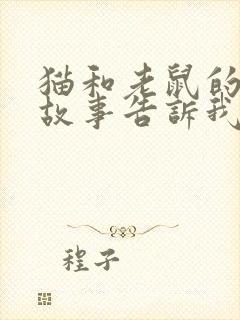 猫和老鼠的
故事告訴我
程子